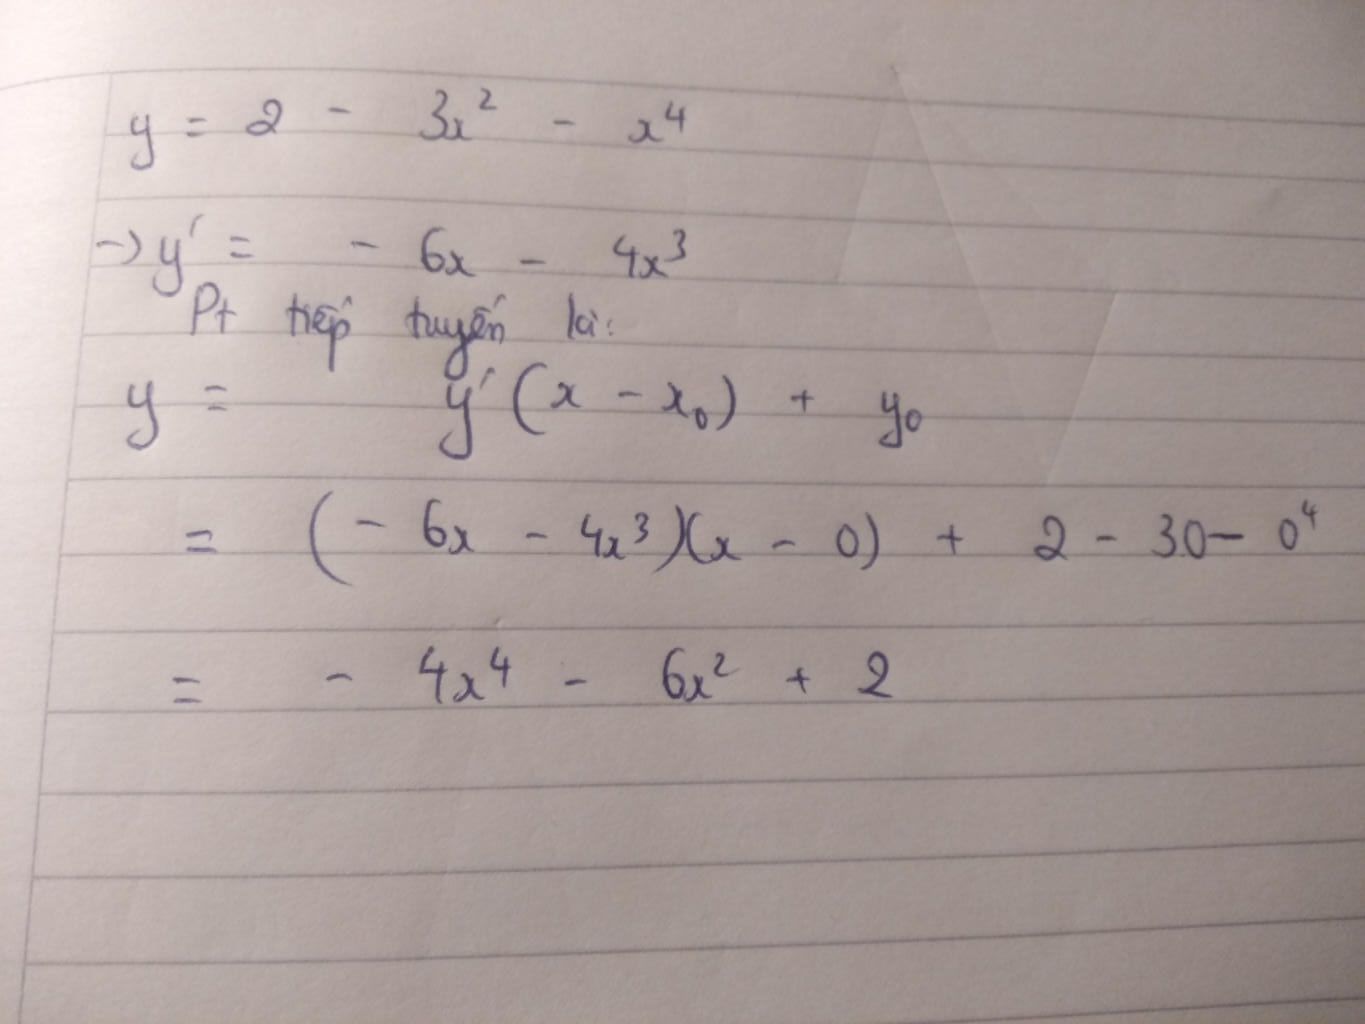 y = 2 - 3x² - x⁴
→ y' = - 6x - 4x³
Pt tiếp tuyến là:
y = y' (x - x₀) + y₀
= (- 6x - 4x³)(x - 0) + 2 - 30 - 0⁴
= - 4x⁴ - 6x² + 2